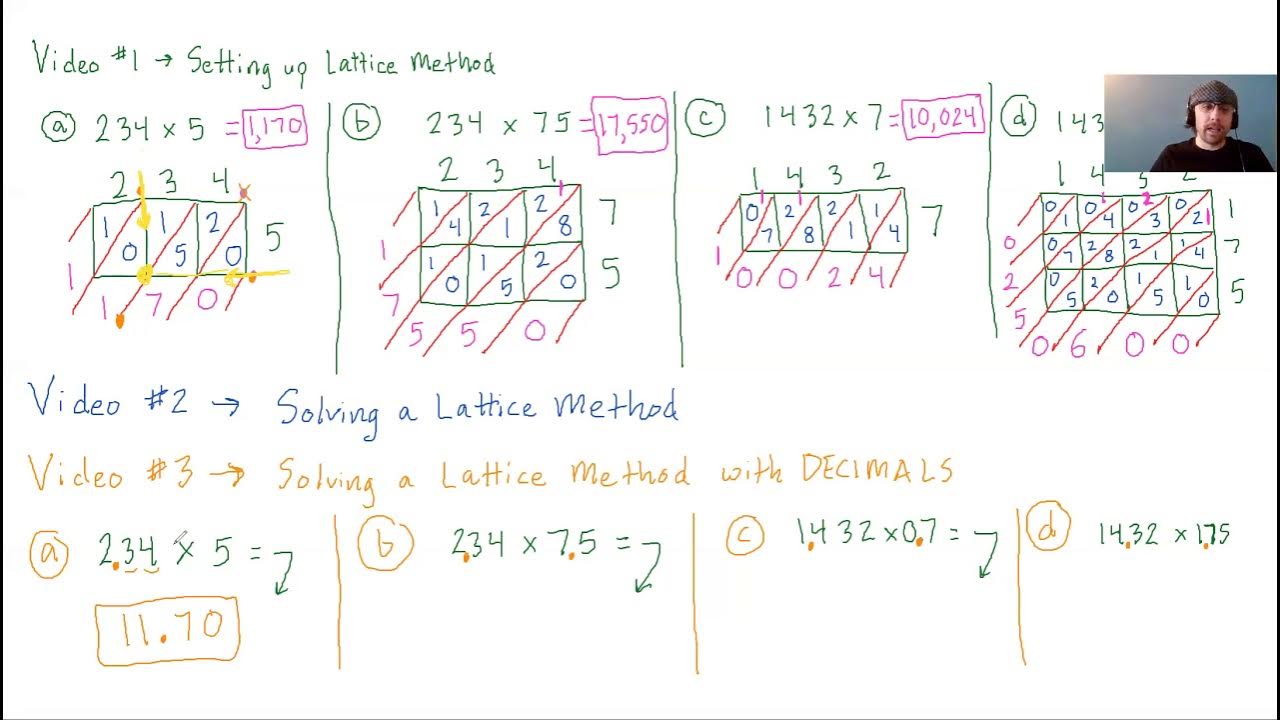 Video #1 → Setting up Lattice Method
ⓐ 234 × 5 = 1,170
2 3 4
1 1 2
0 5 0
5
1
1 7 0
ⓑ 234 × 75 = 17,550
1
2 3 4
1 2 2
4 1 8
7
1
1 1 2
0 5 0
5
7
5 5 0
ⓒ 1432 × 7 = 10,024
1 4 3 2
1 1
0 2 2 1
7 8 1 4
7
1
0 0 2 4
ⓓ 143
1 4 3 2
1 2 1
0 0 0 0
1 4 3 2
1
0
0 2 2 1
7 8 1 4
7
2
0 2 1 1
5 0 5 0
5
5
0 6 0 0
Video #2 → Solving a Lattice Method
Video #3 → Solving a Lattice Method with DECIMALS
ⓐ 2.34 × 5 =
11.70
ⓑ 2.34 × 7.5 =
ⓒ 1.432 × 0.7 =
ⓓ 14.32 × 1.75